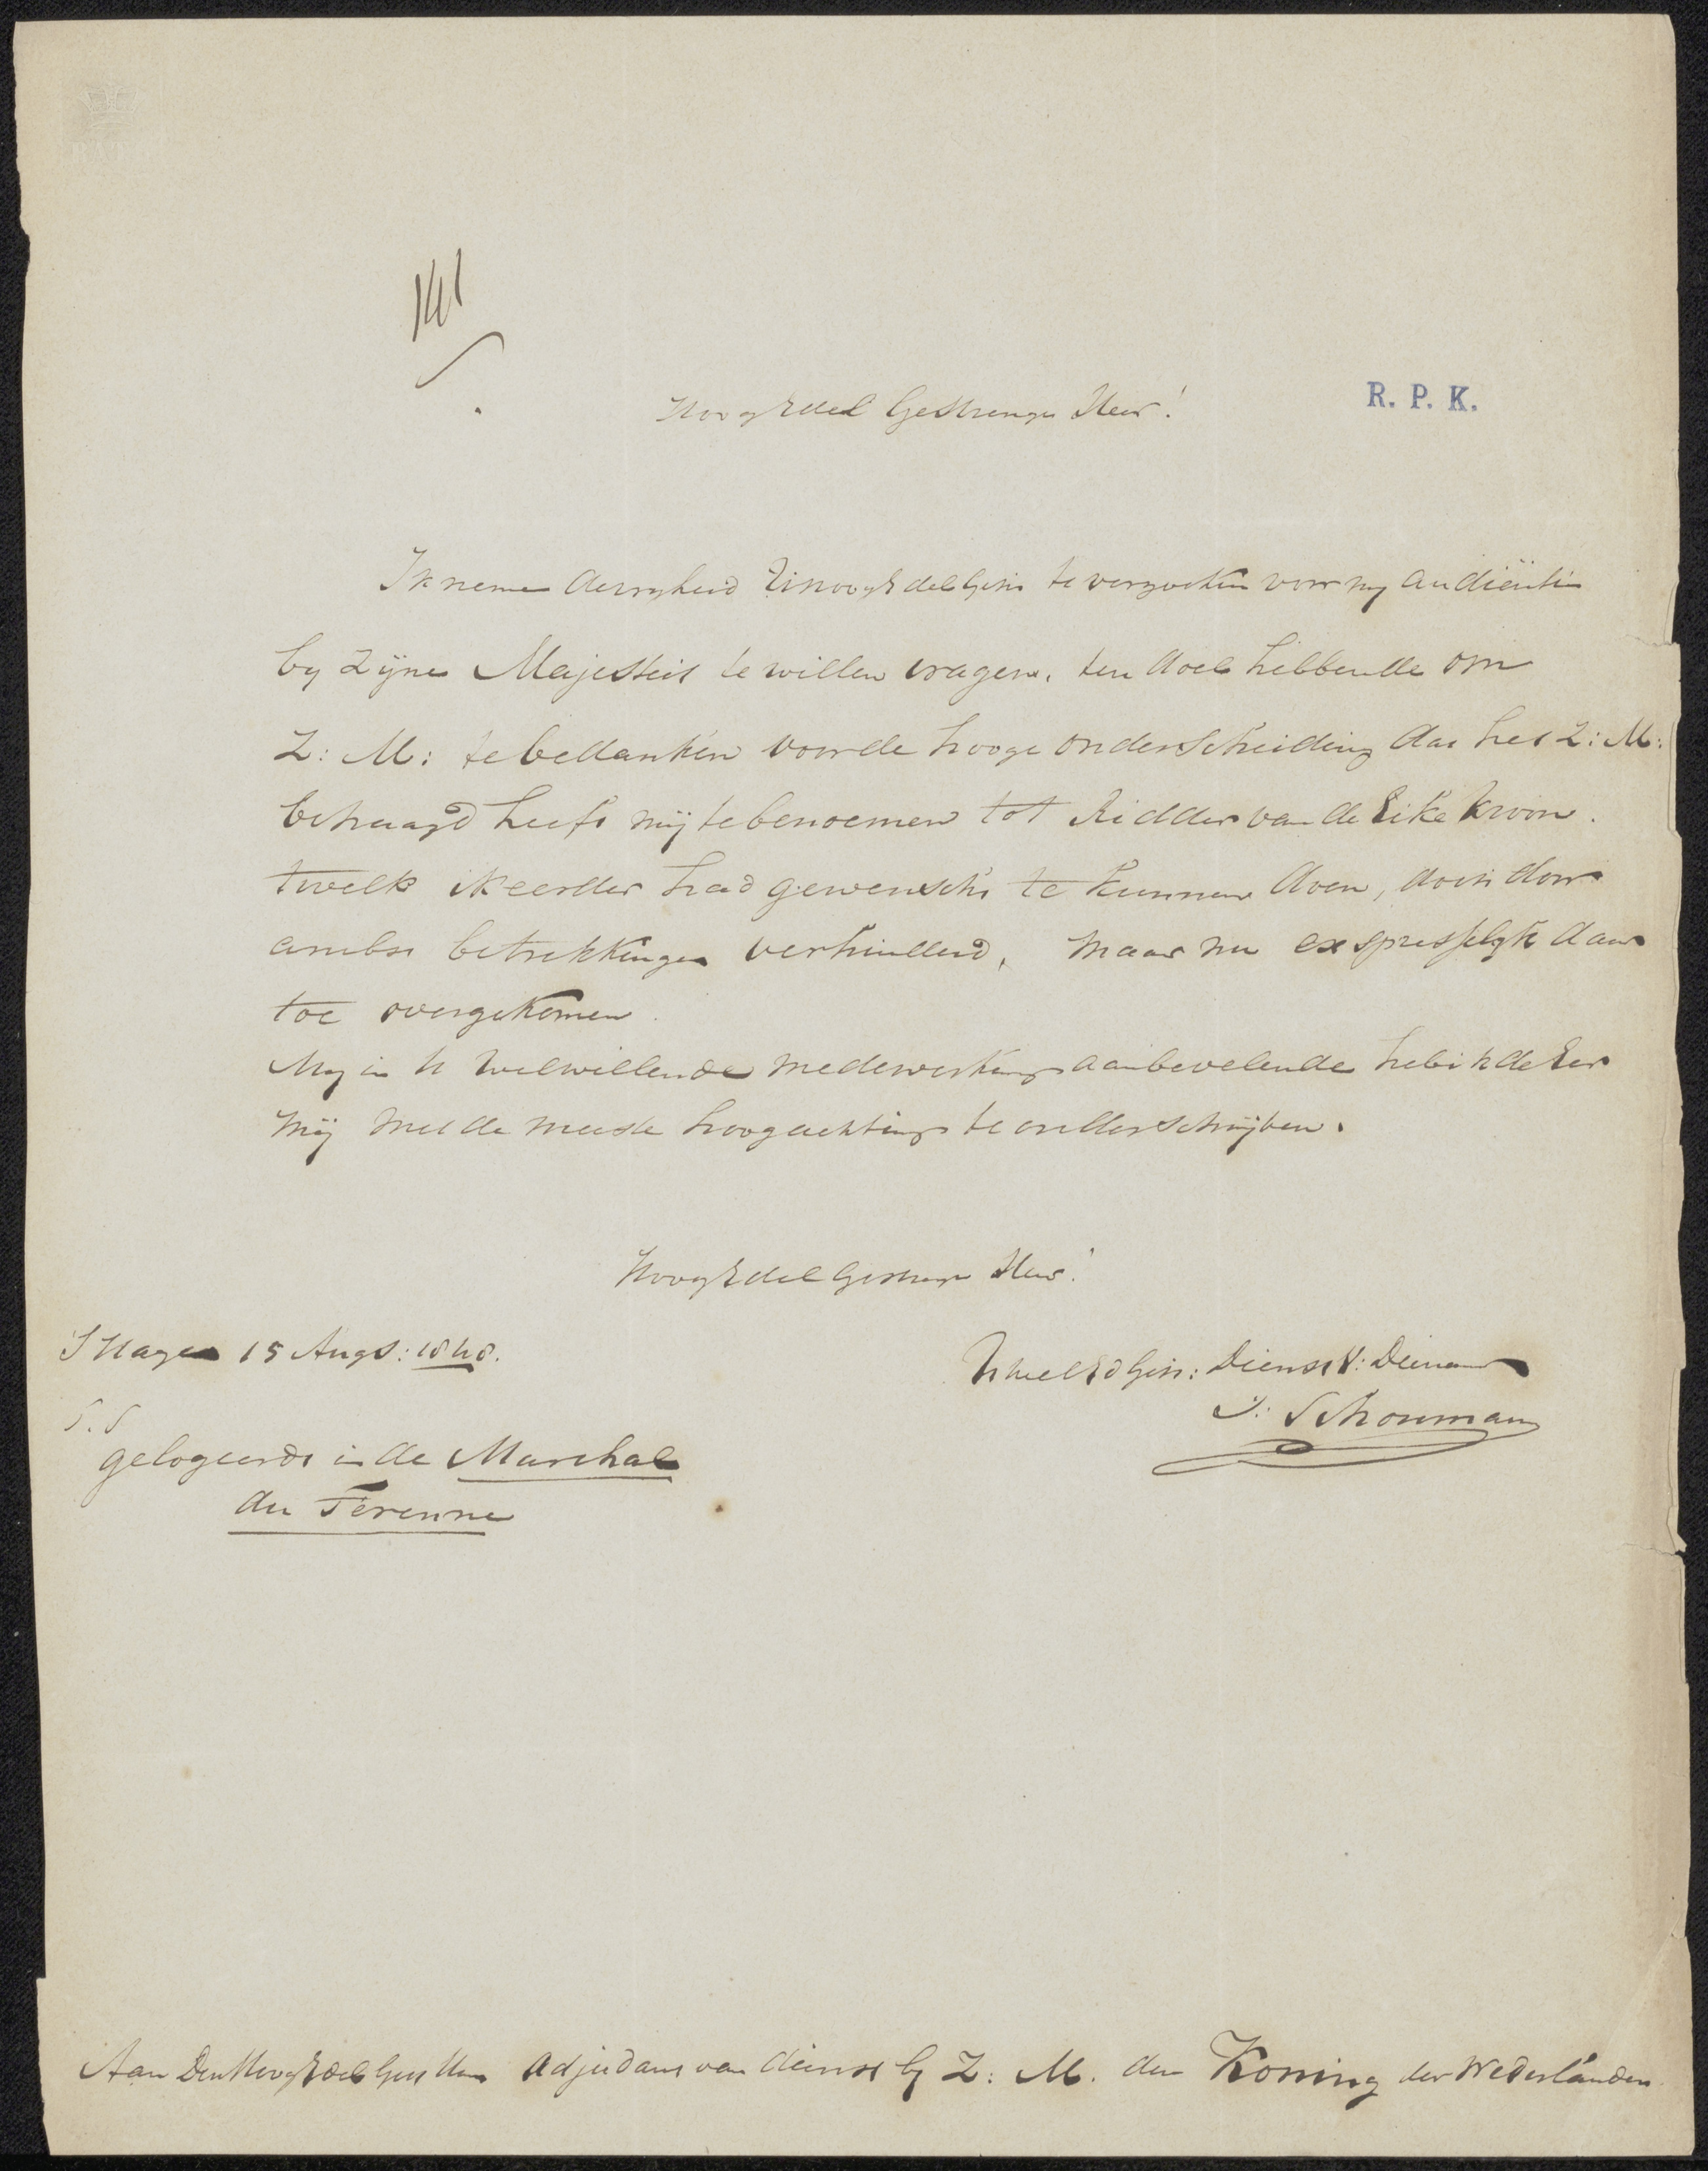 R. P. K.
HoogEdel Gestrenge Heer!
Ik neme de vryheid UHoogEdelGestr te verzoeken voor my audiëntie
by Zyne Majesteit te willen vragen, ten doel hebbende om
Z: M: te bedanken voor de hooge onderscheiding dat het Z: M:
behaagd heeft mij te benoemen tot Ridder van de Eike Kroon.
twelk ik eerder had gewenscht te kunnen doen, doch door
ambts betrekkingen verhinderd, maar nu expresselyk daar
toe overgekomen.
My in U welwillende medewerking aanbevelende heb ik de Eer
mij met de meeste hoogachting te onderschrijven.
HoogEdel Gestrenge Heer!
S Hage 15 Augs: 1848.
UwelEdGestr: Dienstv: Dienaar
Schouman
gelogeerd in de Marchal
du Terenne
Aan Den HoogEdelGestr Heer Adjudant van dienst by Z: M. den Koning der Nederlanden